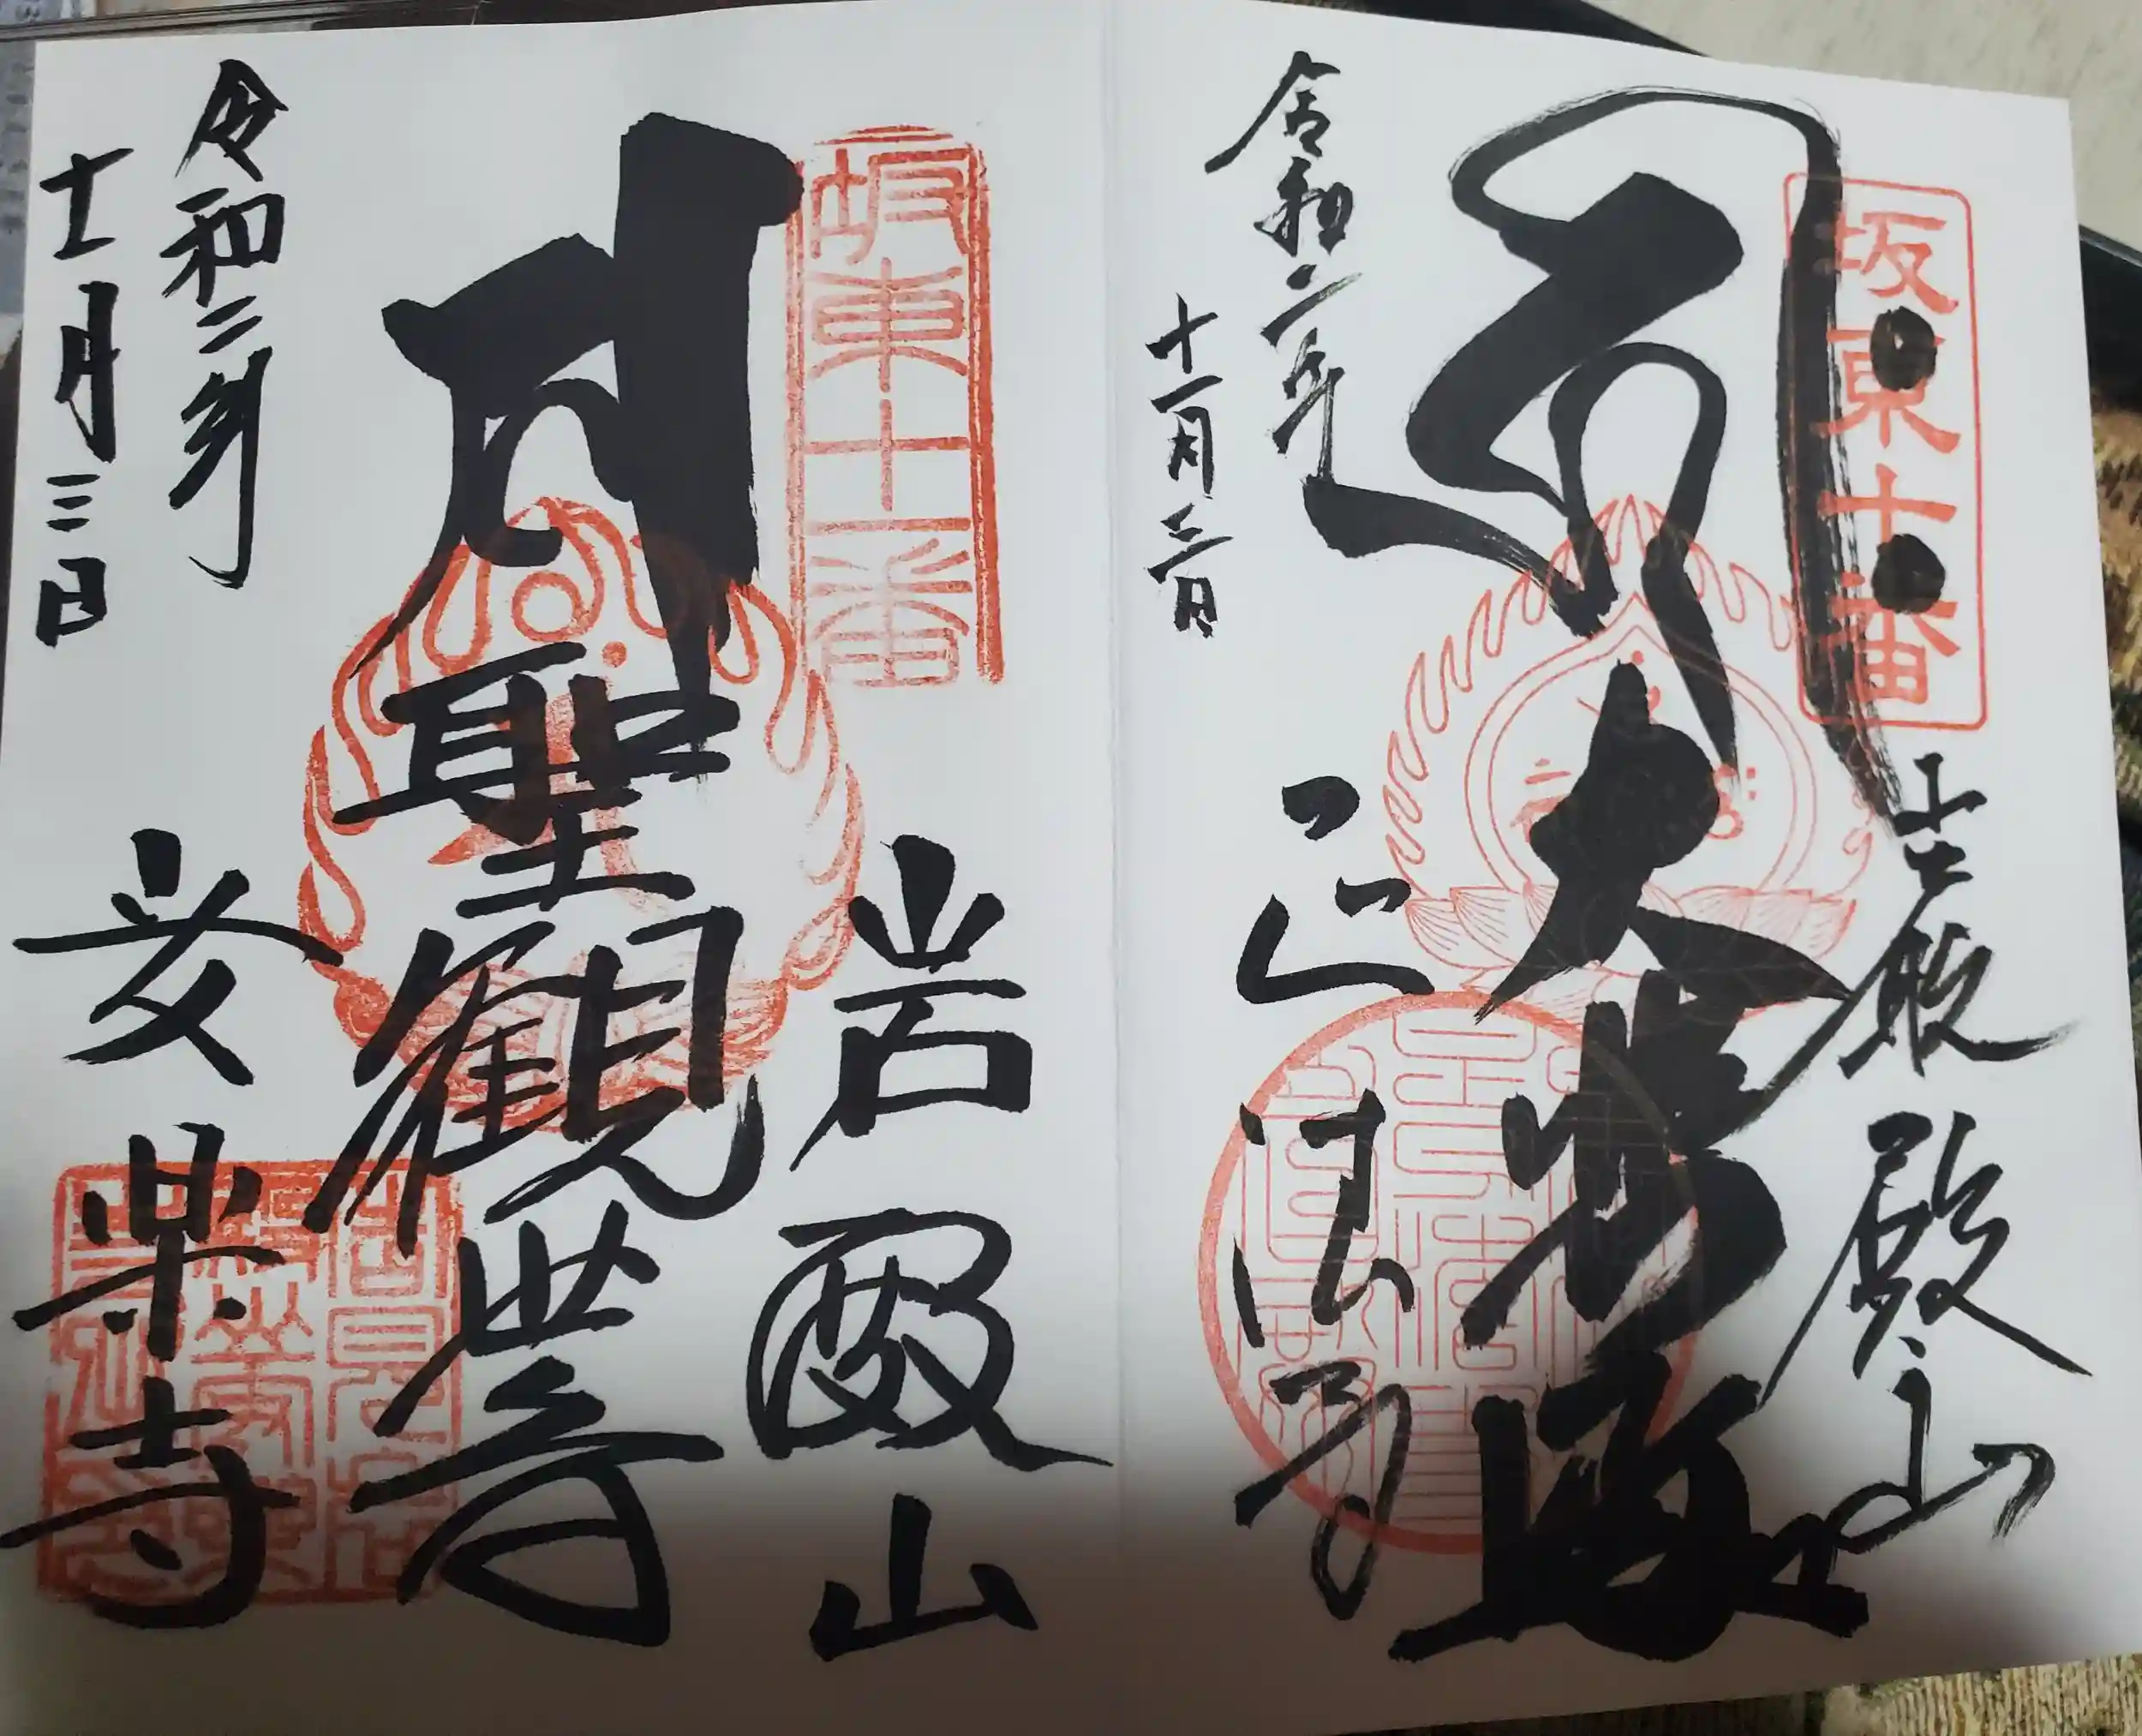 坂東十番
巌殿山
大悲
正法寺
令和二年
十一月三日
坂東十一番
岩殿山
聖観世音
安楽寺
令和二年
十一月三日